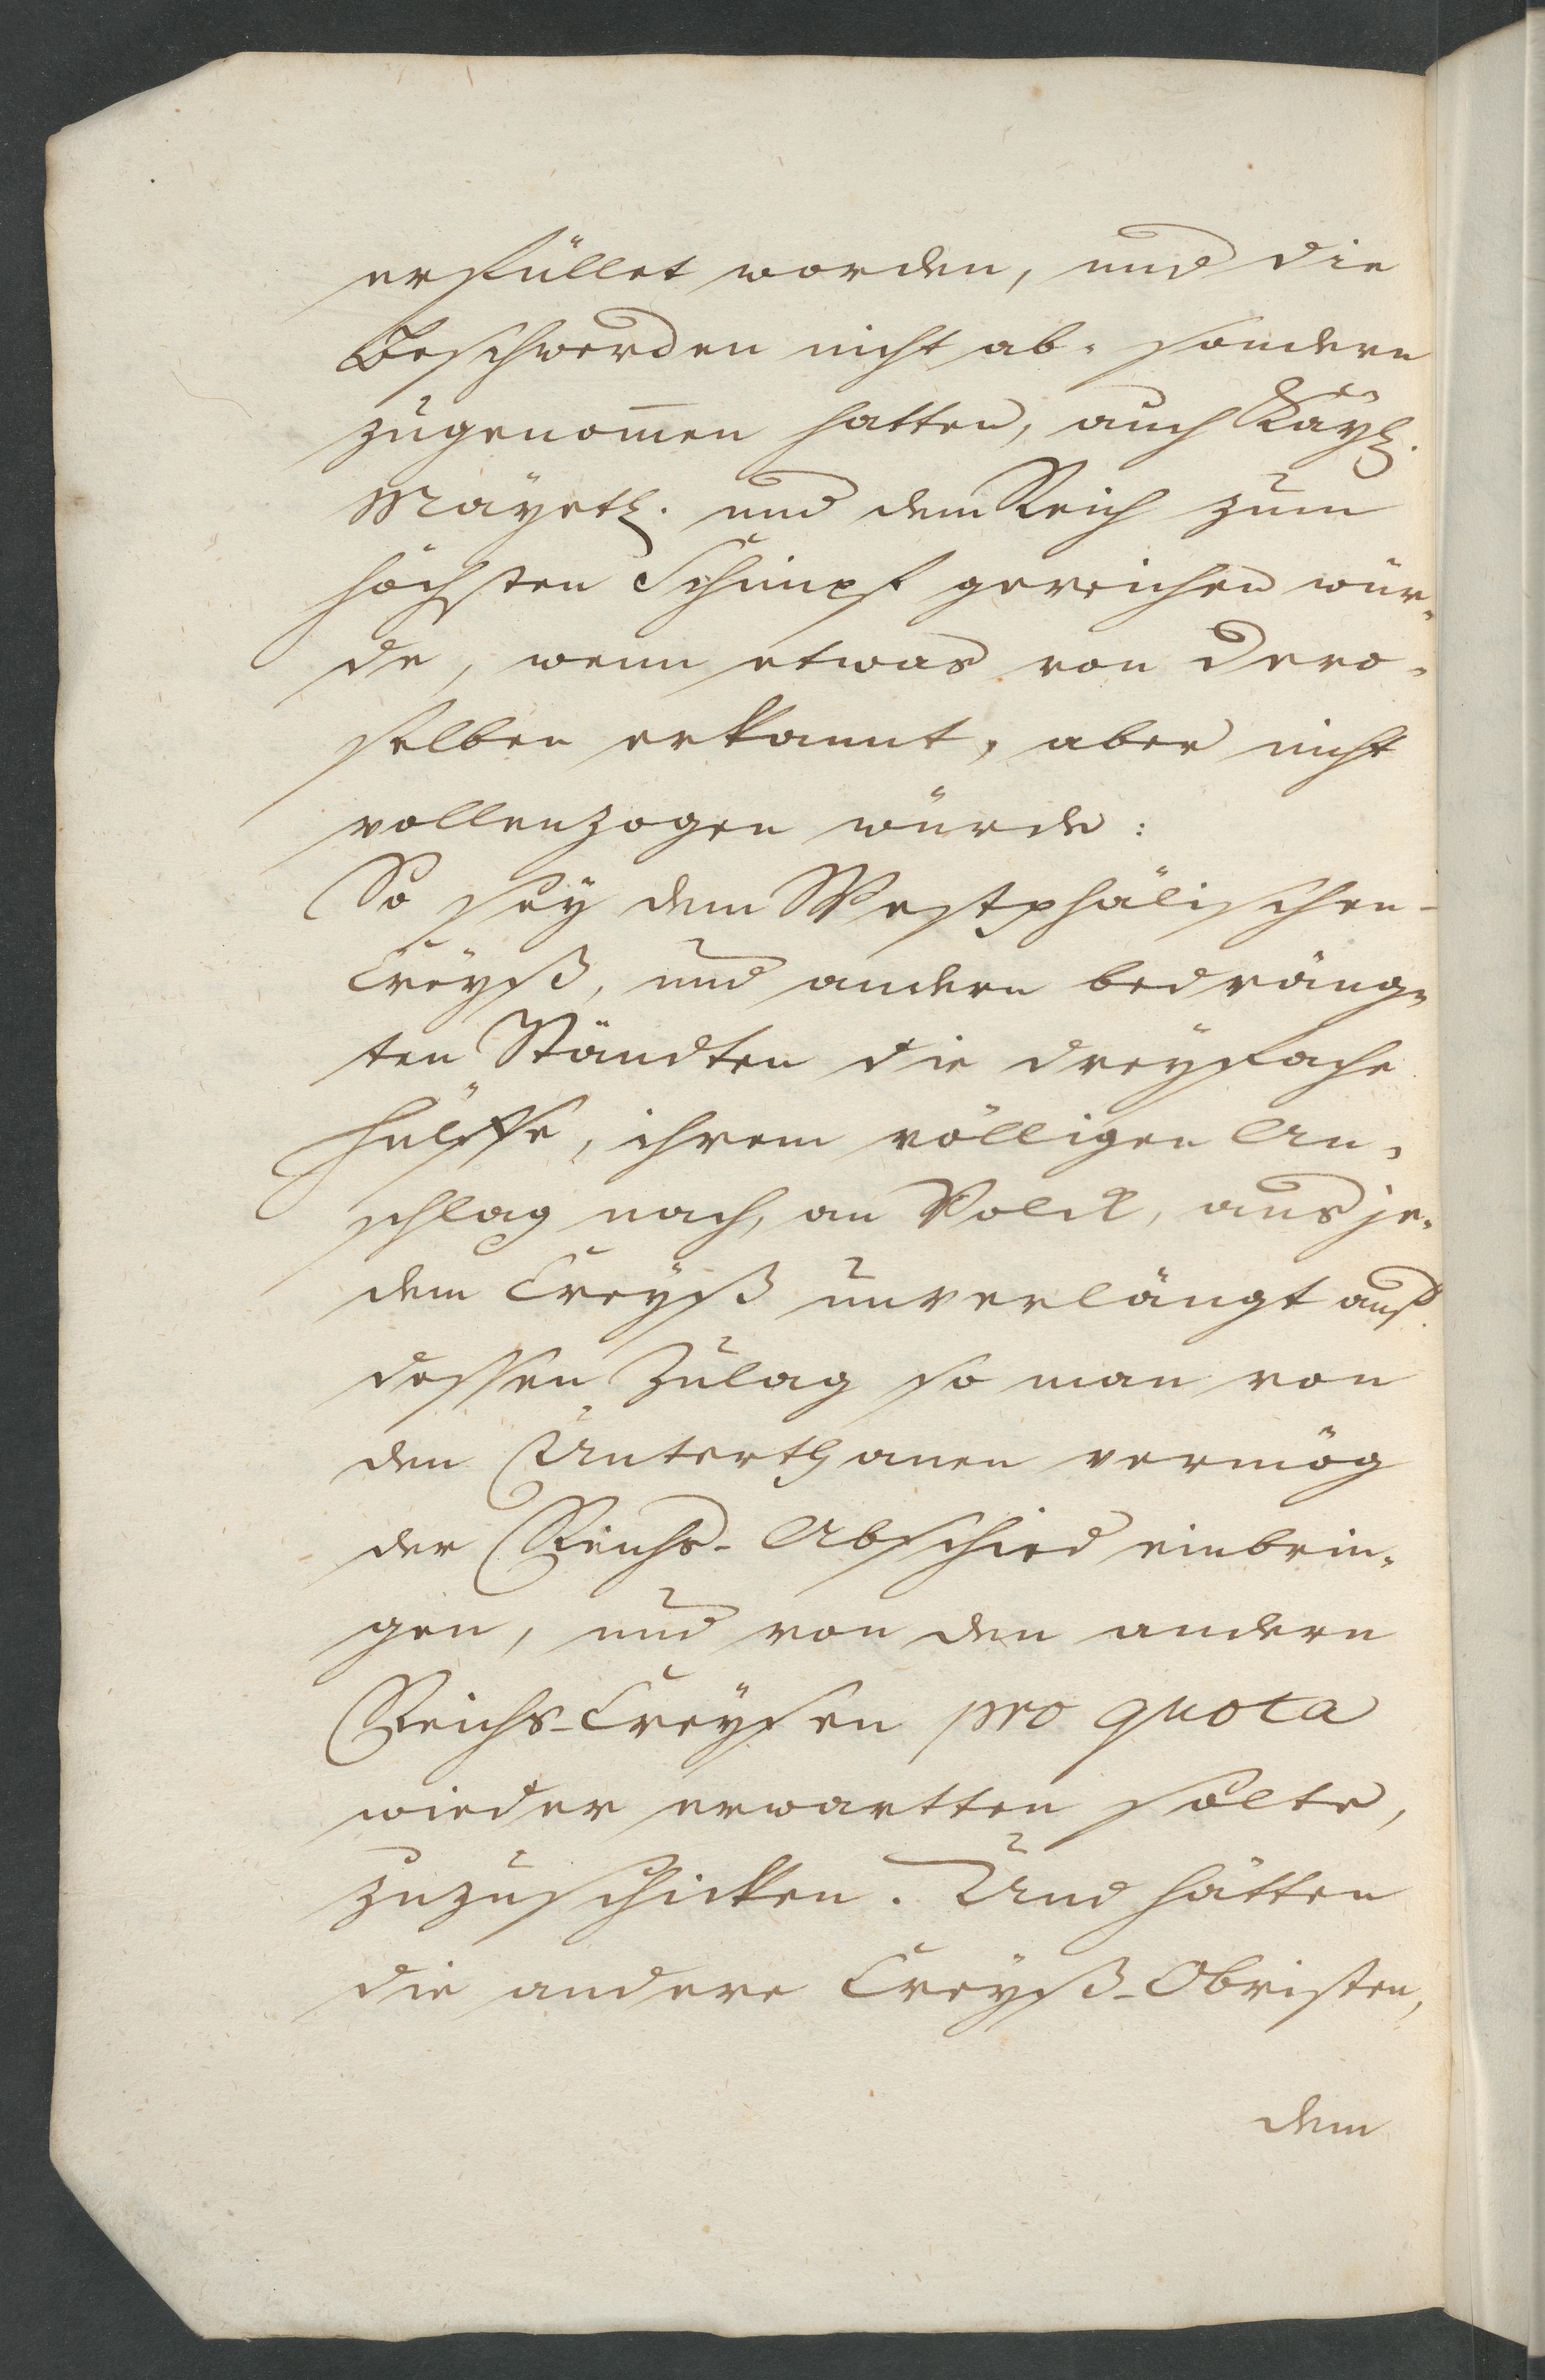 erfüllet worden, und die
Beschwerden nicht ab- sondern
zugenom̄en hatten, auch Kaÿl.
Maÿetl. und dem Reich zum
höchsten Schimpf gereichen wür-
de, wenn etwas von Dero-
selben erkannt, aber nicht
vollenzogen würde:
So seÿ dem Westphälischen-
Creÿß, und andern bedräng-
ten Ständten die dreÿfache
Hülffe, ihrem völligen An-
schlag nach, an Volck, aus je-
dem Creÿß unverlängt auf
dessen Zulag so man von
den Unterthanen vermög
der Reichs-Abschied einbrin-
gen, und von den andern
Reichs-Creÿsen pro quota
wieder erwartten solte,
zuzuschicken. Und hätten
die andere Creÿß-Obristen,
dem